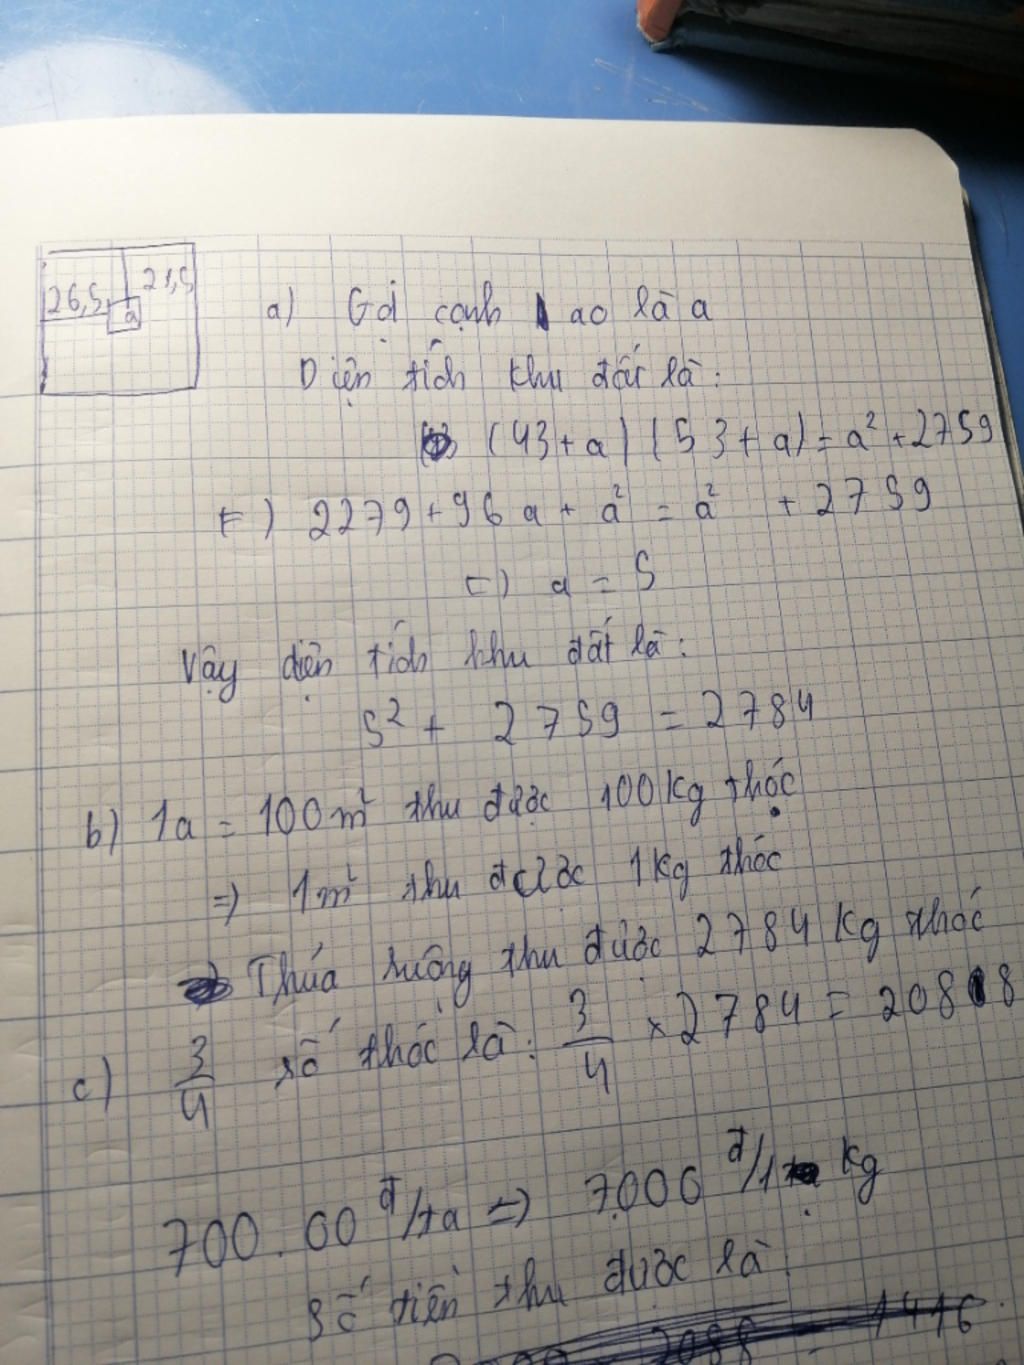 26,5 21,5
a
a) Gọi cạnh ao là a
Diện tích khu đất là:
(43+a)(53+a)=a²+2759
2279+96a+a²=a²+2759
a = 5
Vậy diện tích khu đất là:
5²+ 2759 = 2784
b) 1a = 100m² thu được 100kg thóc
=) 1m² thu được 1kg thóc
Thửa ruộng thu được 2784 kg thóc
c) 3/4 số thóc là: 3/4 × 2784 = 2088
700.00 đ/tạ =) 7.000 đ/1 kg
số tiền thu được là:
2088 = 1416